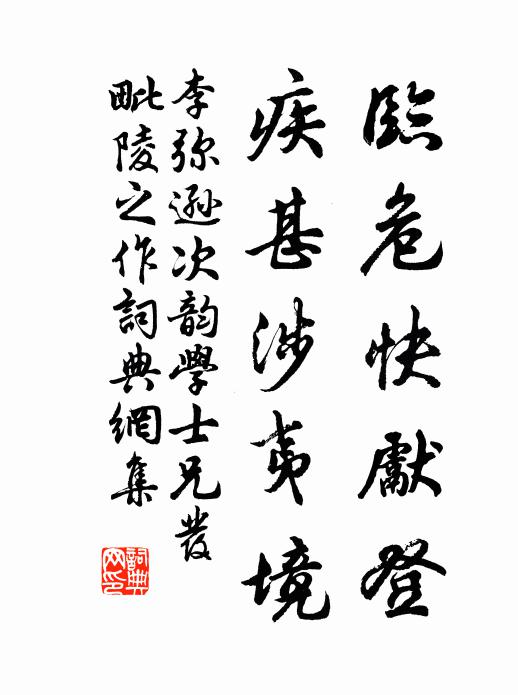 臨危快獻登
疾甚涉夷境
李弥遜次韵學士兄發
毗陵之作詞典網集
詞典网印